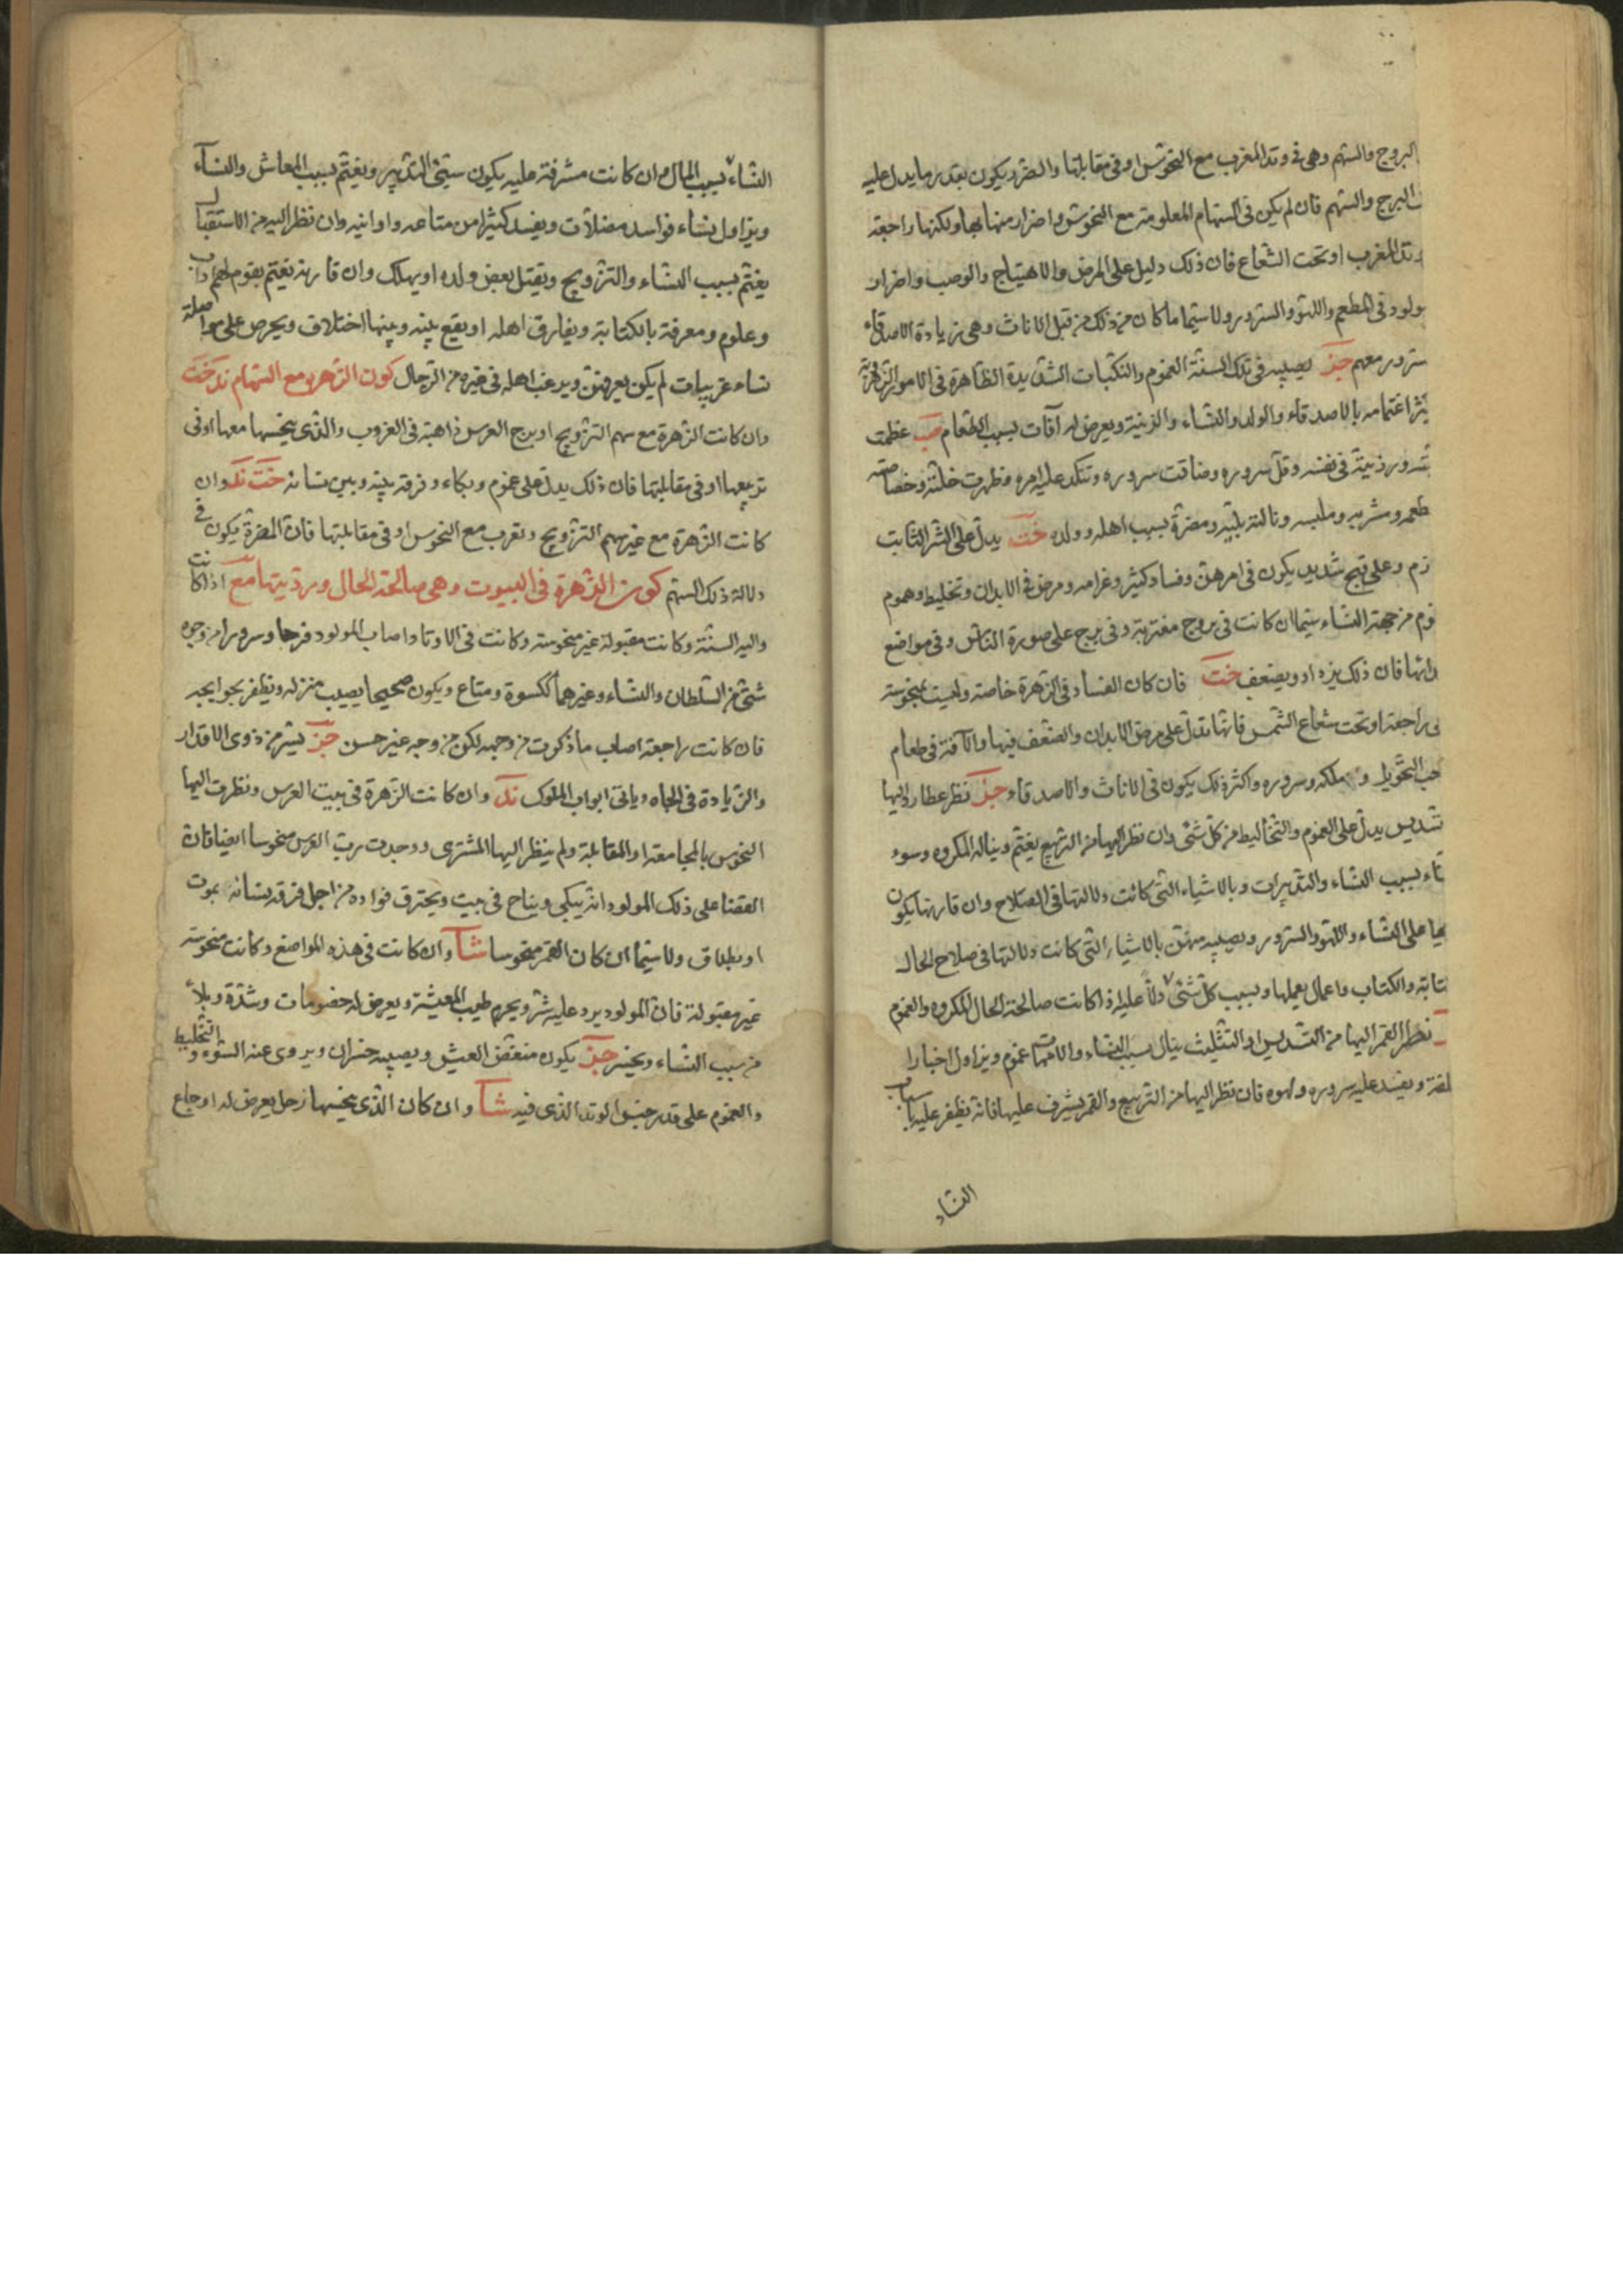 البروج والسهم وهى فى وتد المغرب مع النحوس او فى مقابلتها والضرر يكون بقدر ما يدل عليه
البرج والسهم فان لم يكن فى السهام المعلومة مع النحوس واضرار منها بها ولكنها راجعة
وتد المغرب او تحت الشعاع فان ذلك دليل على المرض والاهتياج والوصب واضرار
مولود فى المطعم واللهو والسرور ولا سيما ما كان من ذلك من قبل الاناث وهى زيادة الاصدقاء
سرور معهم جز يصيبه فى تلك السنة الغموم والنكبات الشديدة الظاهرة فى الامور الزهرية
اغتمامه بالاصدقاء والولد والنساء والزينة ويعرض له آفات بسبب الطعام حب عظمت
ورذيتة فى نفسه وقل سروره وضاقت سروره وتنكد عليه امره وظهرت خلته وخصاصته
طعمه وشربه وملبسه ونالته بلية ومضرة بسبب اهله وولده خت يدل على الشر الثابت
وعلى قبح شديد يكون فى امرهن وفساد كثير وغرامه ومرض فى الابدان وتخليط وهموم
من جهة النساء سيما ان كانت فى بروج مغتربة وفى برج على صورة الناس وفى مواضع
فان ذلك يزداد ويضعف خت فان كان الفساد فى الزهرة خاصة وليست بمنحوسة
راجعة او تحت شعاع الشمس فانها تدل على مرض الابدان والضعف فيها والآفة فى طعام
التحويل و ملكه وسروره واكثر ذلك يكون فى الاناث والاصدقاء جز نظر عطارد اليها
تسديس يدل على الغموم والتخاليط من كل شئ وان نظر اليها من التربيع يغتم ويناله المكروه وسوء
بسبب النساء والتدبيرات وبالاشياء التى كانت دلالتها فى الصلاح وان قارنها يكون
على النساء واللهو والسرور ويصيبه منهن بالاشياء التى كانت دلالتها فى صلاح الحال
والكتاب واعمال يعملها وبسبب كل شئ دلا عليه اذا كانت صالحة الحال المكروه والغموم
نظر القمر اليها من التسديس او التثليث ينال بسبب النساء والامهات غموم ويزاول اخبارا
ويفسد عليه سروره ولهوه فان نظر اليها من التربيع والقمر يشرف عليها فانه يظفر عليه
النساء
النساء بسبب المال وان كانت مشرفة عليه يكون سيئ التدبير ويغتم بسبب المعاش والنساء
ويزاول نساء فواسد مضلات ويفسد كثيرا من متاعه واوانيه وان نظر اليه من الاستقبال
يغتم بسبب النساء والتزويج ويقتل بعض ولده او يهلك وان قارنه يغتم بقوم لهم داب
وعلوم ومعرفة بالكتابة ويفارق اهله او يقع بينه وبينها اختلاف ويحرص على مواصلة
نساء غريبات لم يكن يعرفهن ويرغب اهله فى غيره من الرجال كون الزهره مع السهام ند خت
وان كانت الزهرة مع سهم التزويج او برج العرس ذاهبة فى الغروب والذى ينحسها معها او فى
تربيعها او فى مقابلتها فان ذلك يدل على غموم وبكاء وفرقة بينه وبين نسائه خت ند وان
كانت الزهرة مع غير سهم التزويج وتغرب مع النحوس او فى مقابلتها فان المضرة يكون فى
دلالة ذلك السهم كون الزهرة فى البيوت وهى صالحة الحال ورديتها مع اذا كانت
والية السنة وكانت مقبولة غير منحوسة وكانت فى الاوتاد اصاب المولود فرحا وسرورا من وجوه
شتى من السلطان والنساء وغيرهما ككسوة ومتاع ويكون صحيحا يصيب منزله ويظفر
فان كانت راجعة اصاب ما ذكرت من وجهه لكن من وجه غير حسن جز يسر من ذوى الاقدار
والزيادة فى الجاه وياتى ابواب الملوك ند وان كانت الزهرة فى بيت العرس ونظرت اليها
النحوس بالمجامعة او المقابلة ولم ينظر اليها المشترى ووجدت رب العرس منحوسا ايضا فان
القضا على ذلك المولود انه يبكى ويناح فى بيت ويحترق فواده من اجل فرقة نسائه بموت
او بطلاق ولا سيما ان كان القمر منحوسا شا وان كانت فى هذه المواضع وكانت منحوسة
غير مقبولة فان المولود يرد عليه شر ويحرم طيب المعيشة ويعرض له خصومات وشدة وبلاء
من سبب النساء ويخسر جز يكون منغص العيش ويصيبه خسران ويروى عنه السوء والتخليط
والغموم على قدر جنس الوتد الذى فيه شا وان كان الذى ينحسها زحل يعرض له اوجاع